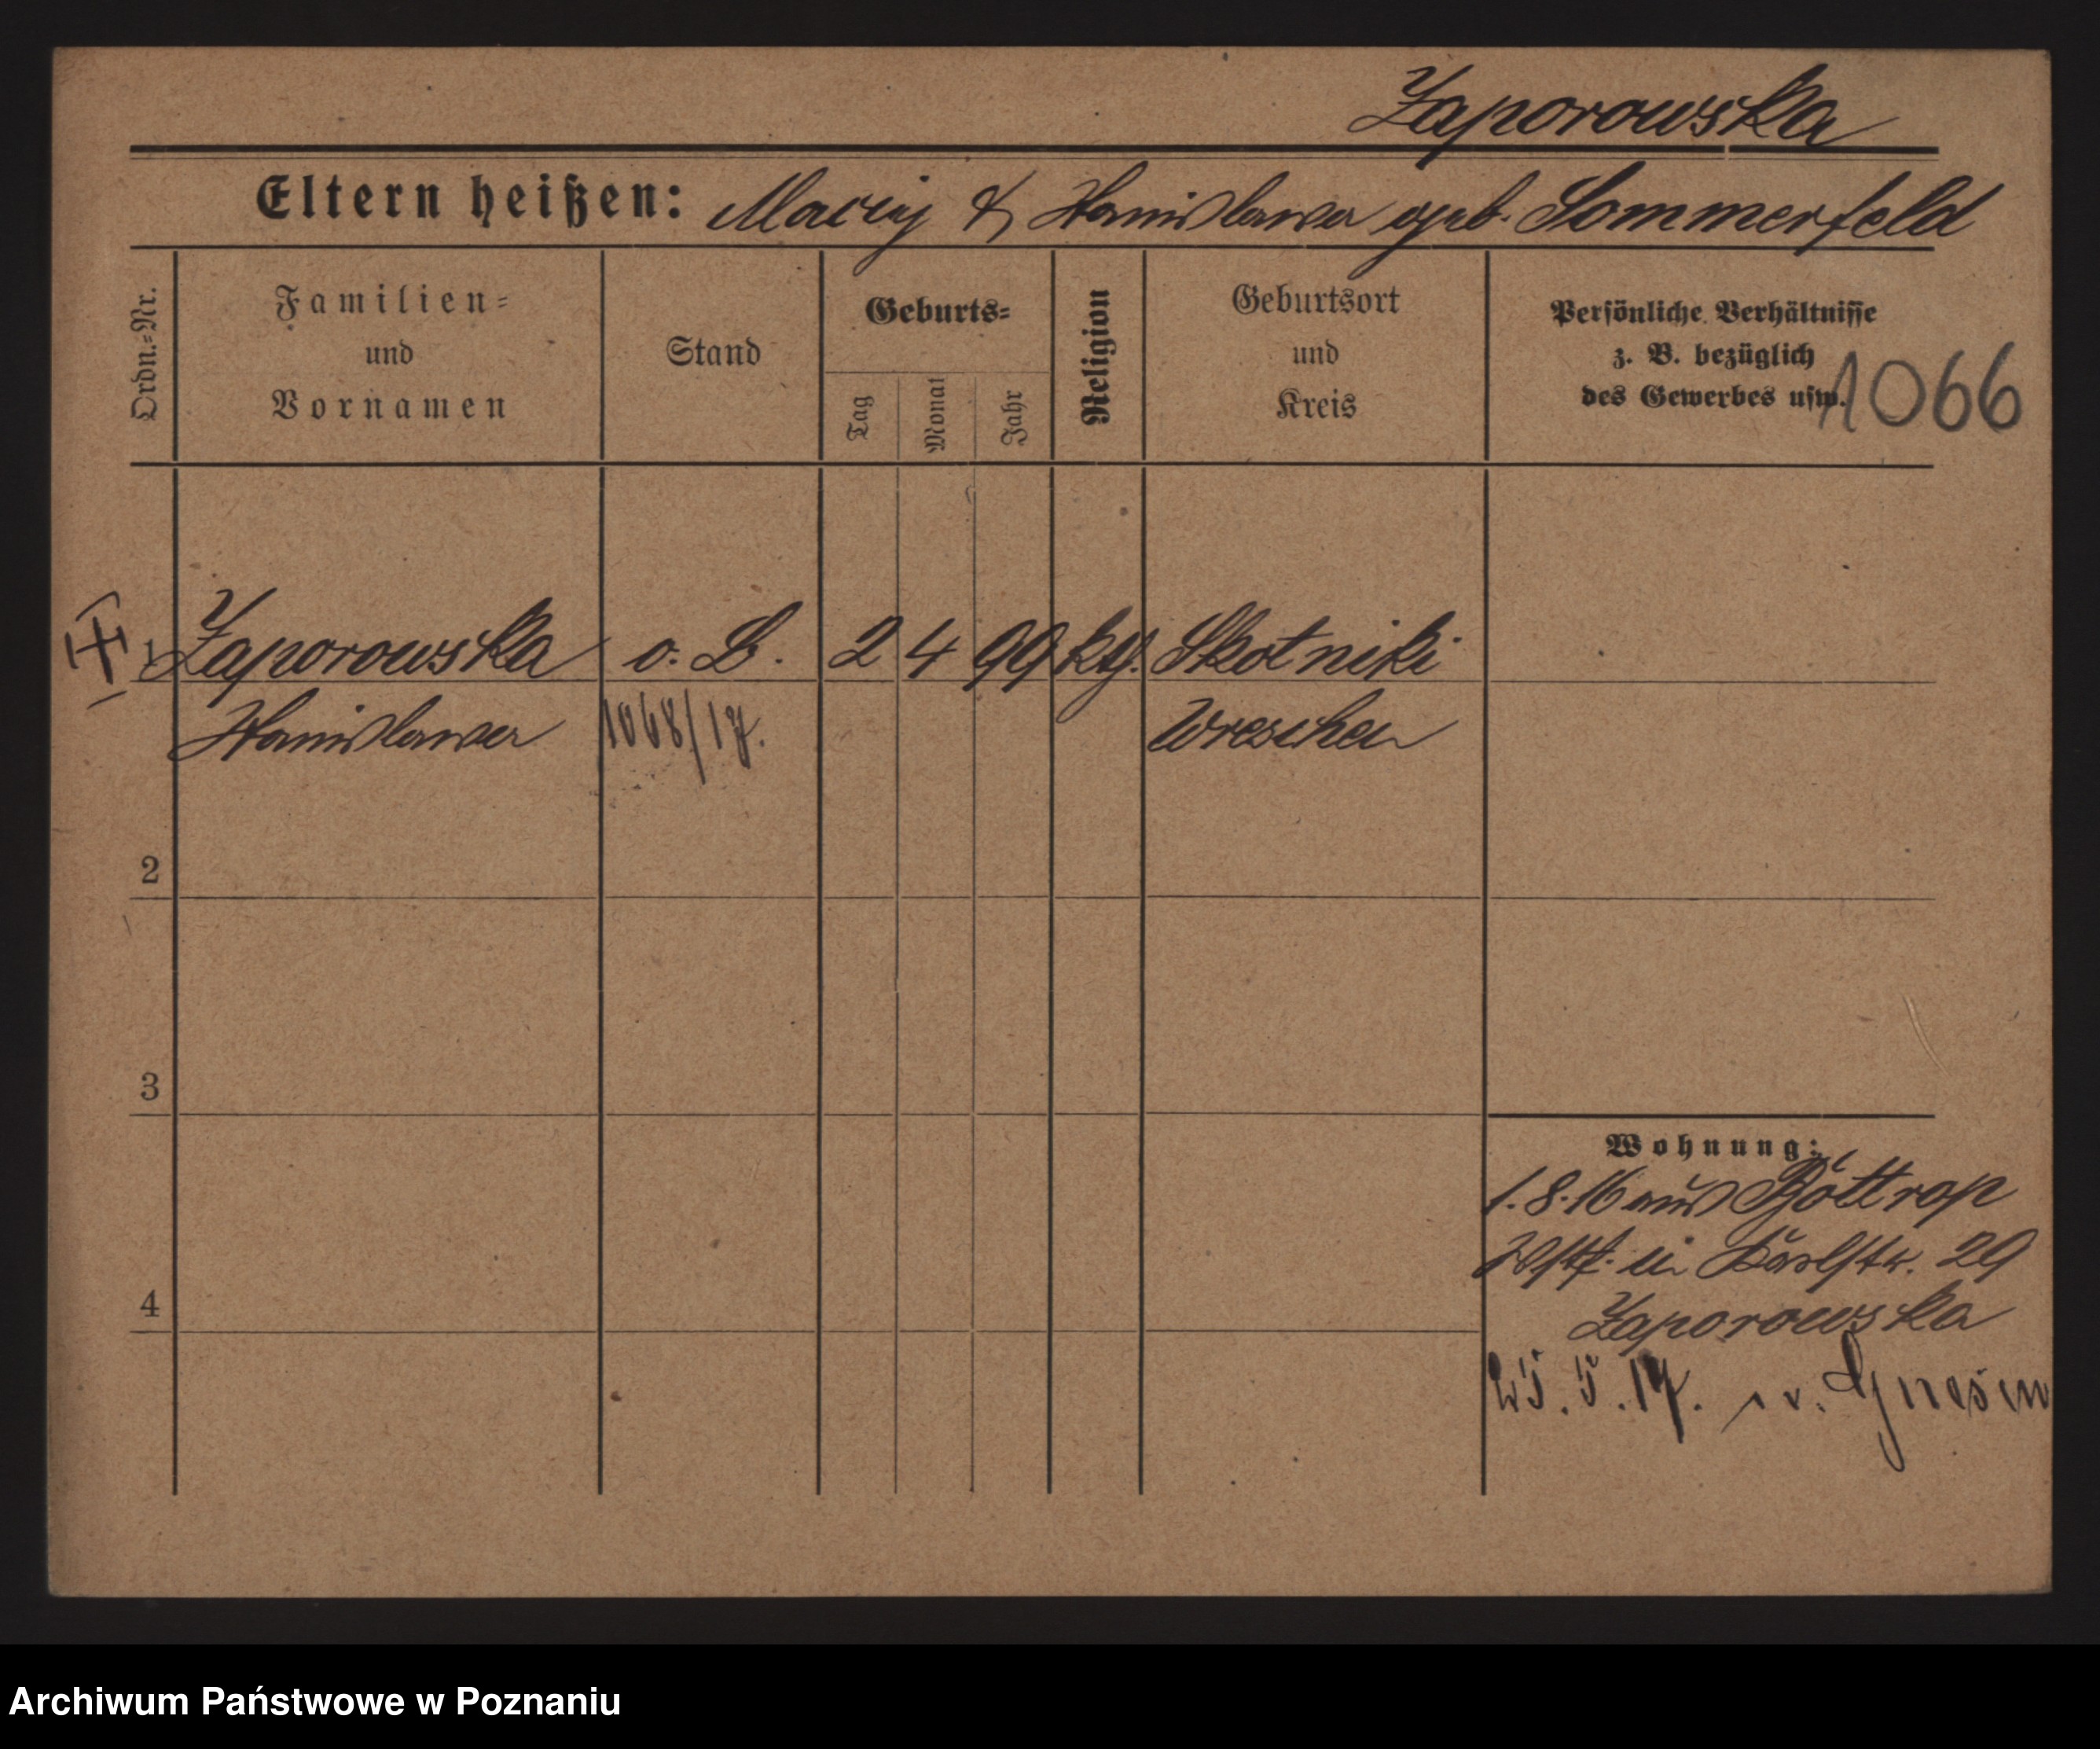 Zaporowska
Eltern heißen: Maciej & Stanislawa geb. Sommerfeld
Ordn.-Nr.
Familien-
und
Vornamen
Stand
Geburts-
Tag
Monat
Jahr
Religion
Geburtsort
und
Kreis
Persönliche Verhältnisse
z. B. bezüglich
des Gewerbes usw.
1066
1 Zaporowska o. B. 2 4 99 kth. Skotniki
Stanislawa 1068/17. Wreschen
2
3
4
Wohnung:
1.8.16 aus Bottrop
Wstf. in 29
Zaporowska
5.17. n. Gnesen
Archiwum Państwowe w Poznaniu